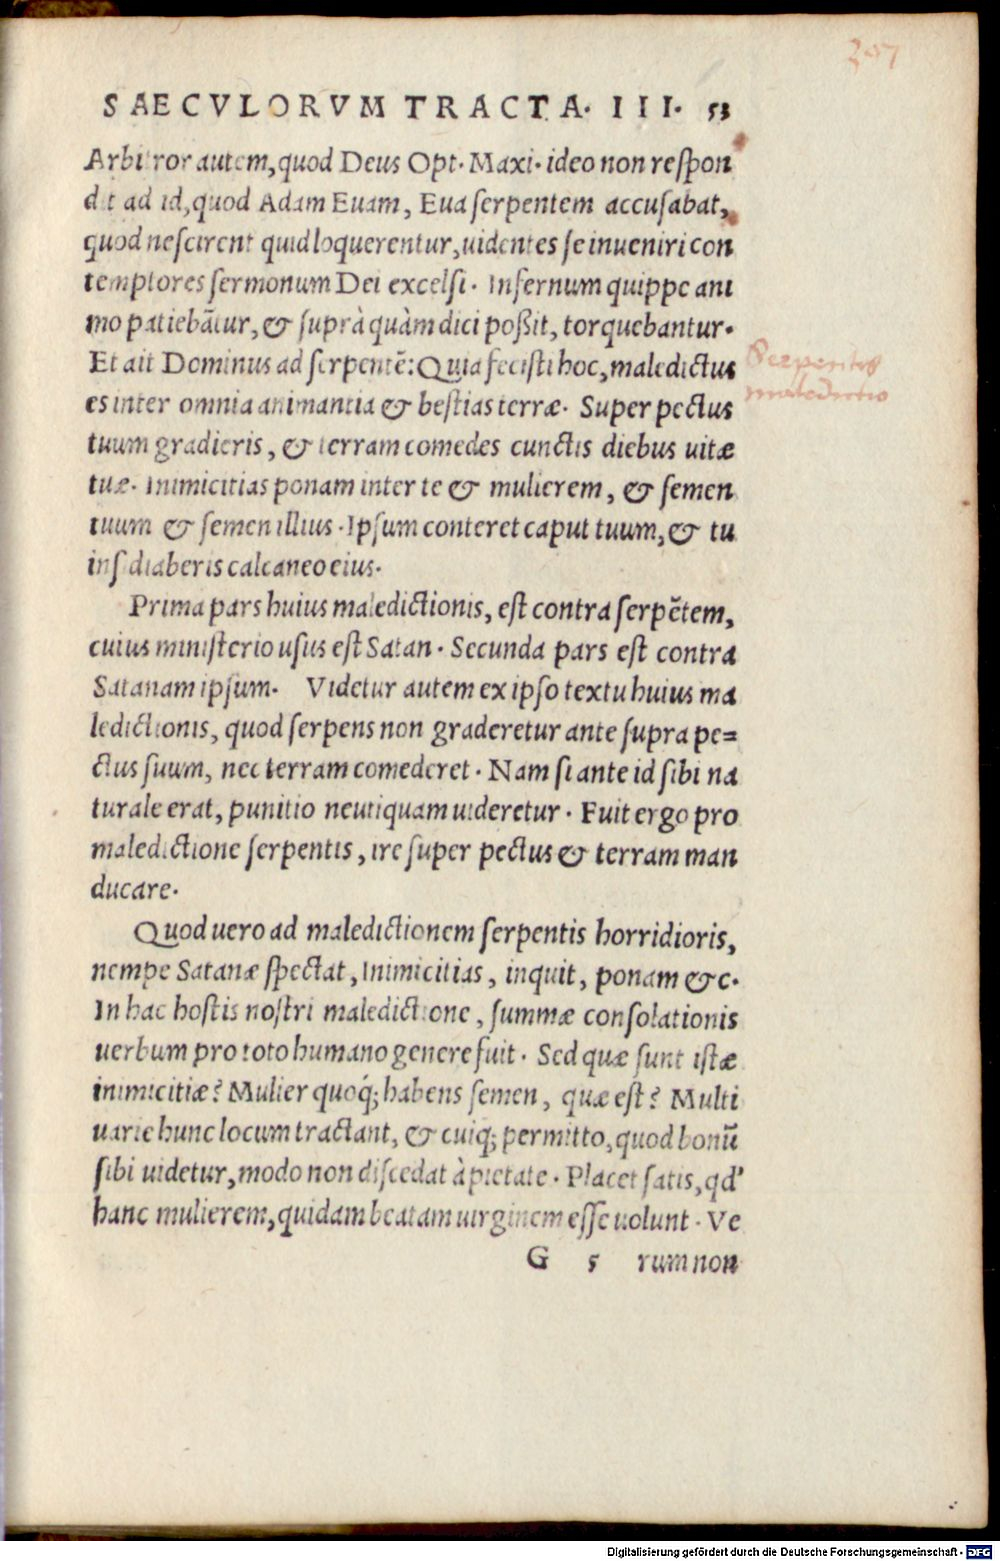 207
SAECVLORVM TRACTA. III. 53
Arbitror autem, quod Deus Opt. Maxi. ideo non respon
dit ad id, quod Adam Euam, Eua serpentem accusabat,
quod nescirent quid loquerentur, uidentes se inueniri con
temptores sermonum Dei excelsi. Infernum quippe ani
mo patiebātur, & suprà quàm dici poßit, torquebantur.
Et ait Dominus ad serpentē: Quia fecisti hoc, maledictus
es inter omnia animantia & bestias terræ. Super pectus
tuum gradieris, & terram comedes cunctis diebus uitæ
tuæ. Inimicitias ponam inter te & mulierem, & semen
tuum & semen illius. Ipsum conteret caput tuum, & tu
insidiaberis calcaneo eius.
Serpentis
maledictio
Prima pars huius maledictionis, est contra serpētem,
cuius ministerio usus est Satan. Secunda pars est contra
Satanam ipsum. Videtur autem ex ipso textu huius ma
ledictionis, quod serpens non graderetur ante supra pe=
ctus suum, nec terram comederet. Nam si ante id sibi na
turale erat, punitio neutiquam uideretur. Fuit ergo pro
maledictione serpentis, ire super pectus & terram man
ducare.
Quod uero ad maledictionem serpentis horridioris,
nempe Satanæ spectat, Inimicitias, inquit, ponam &c.
In hac hostis nostri maledictione, summæ consolationis
uerbum pro toto humano genere fuit. Sed quæ sunt istæ
inimicitiæ? Mulier quoq́; habens semen, quæ est? Multi
uarie hunc locum tractant, & cuiq; permitto, quod bonū
sibi uidetur, modo non discedat à pietate. Placet satis, qd'
hanc mulierem, quidam beatam uirginem esse uolunt. Ve
G 5 rum non
Digitalisierung gefördert durch die Deutsche Forschungsgemeinschaft - DFG